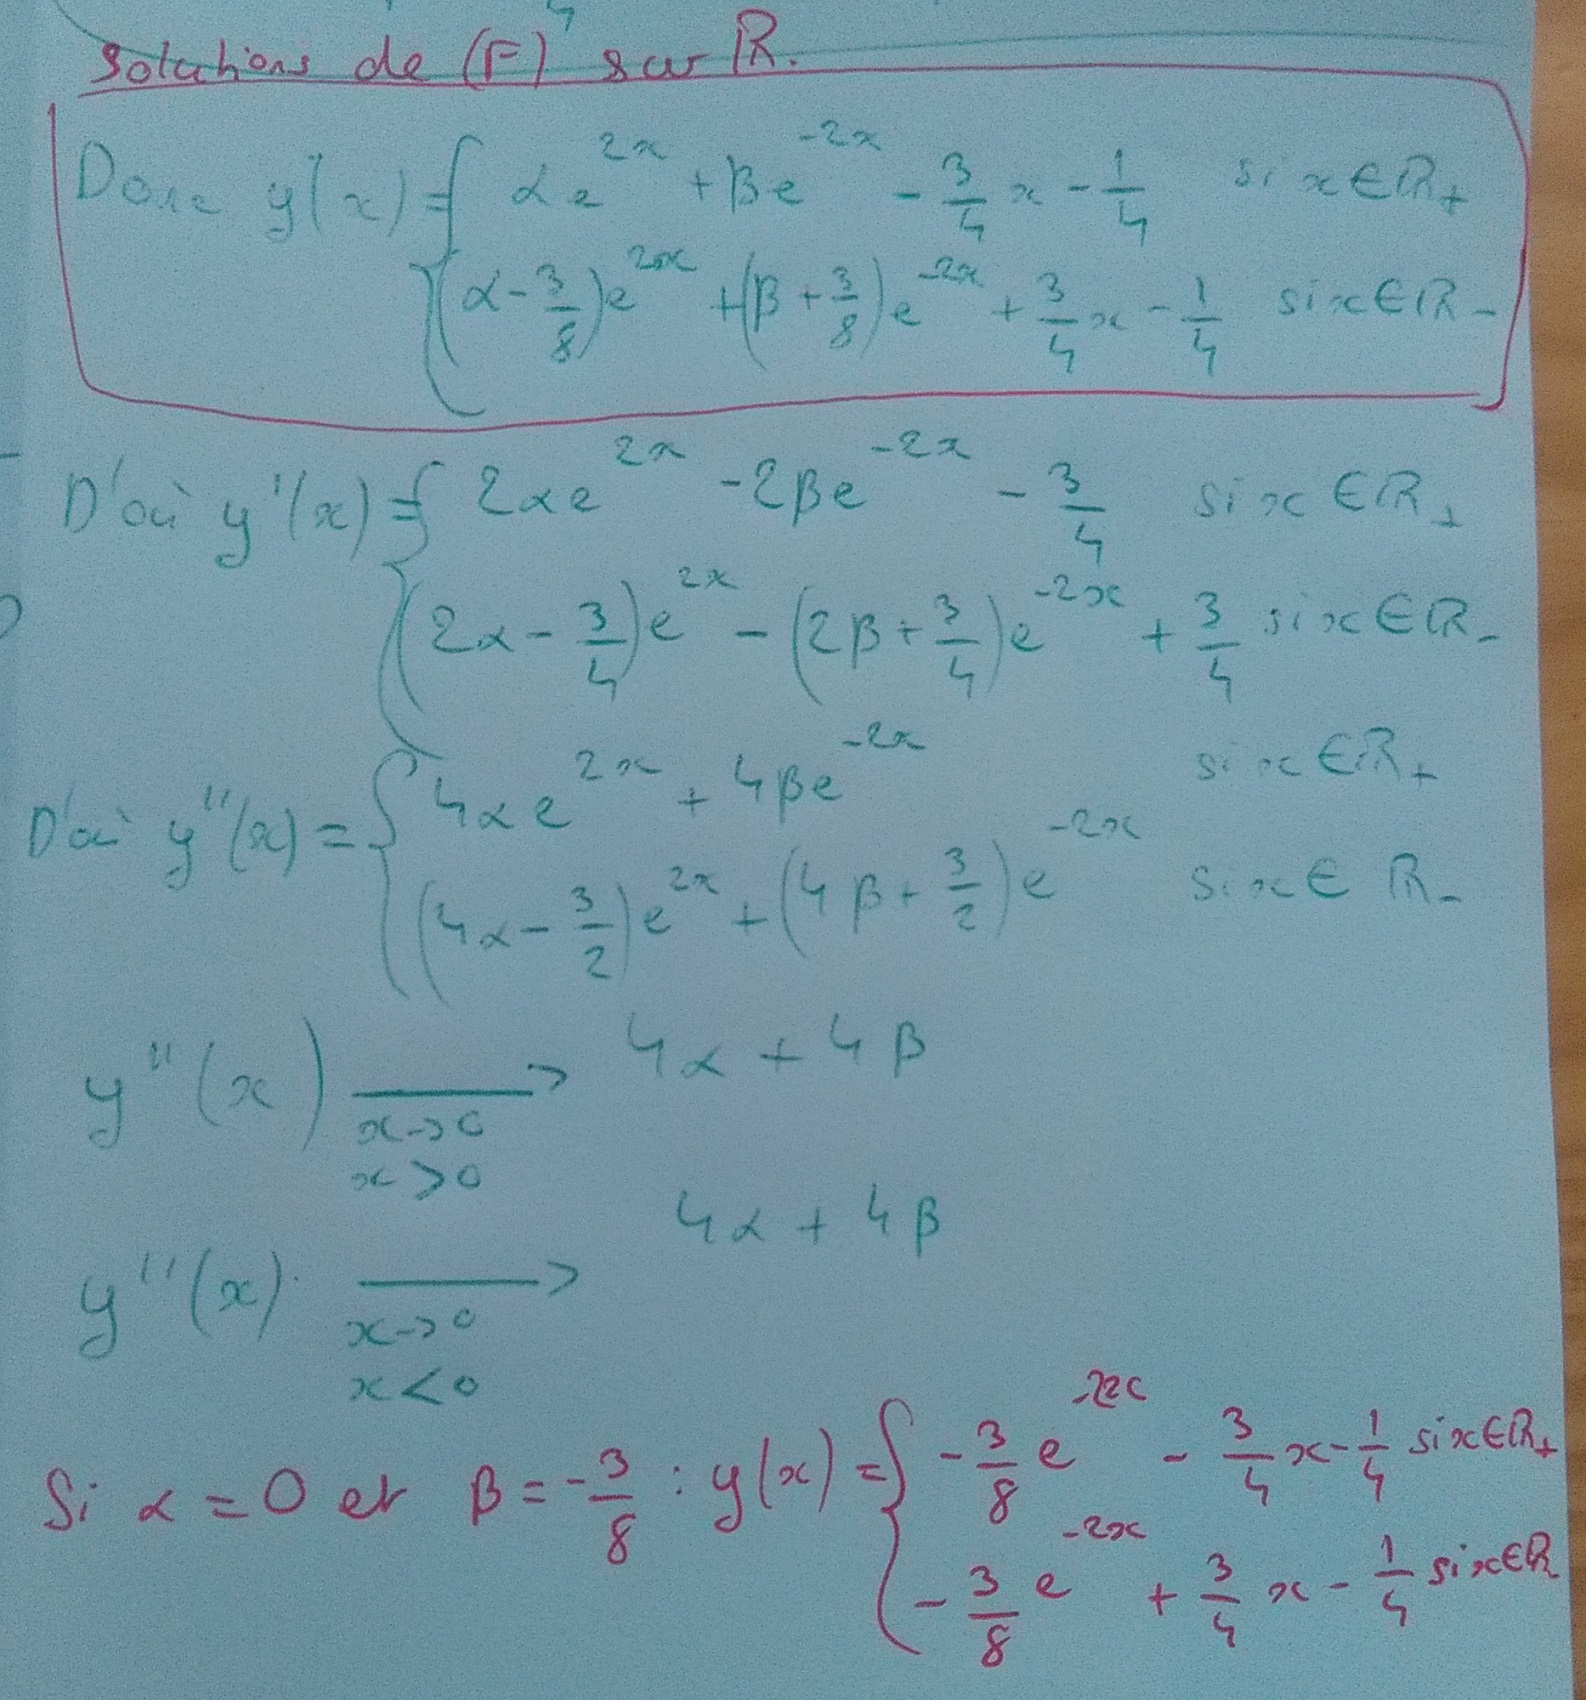 Solutions de (F) sur ℝ.
Donc y(x) = { αe^{2x} + βe^{-2x} - 3/4 x - 1/4 si x ∈ ℝ+
(α - 3/8)e^{2x} + (β + 3/8)e^{-2x} + 3/4 x - 1/4 si x ∈ ℝ-
D'où y'(x) = { 2αe^{2x} - 2βe^{-2x} - 3/4 si x ∈ ℝ+
(2α - 3/4)e^{2x} - (2β + 3/4)e^{-2x} + 3/4 si x ∈ ℝ-
D'où y''(x) = { 4αe^{2x} + 4βe^{-2x} si x ∈ ℝ+
(4α - 3/2)e^{2x} + (4β + 3/2)e^{-2x} si x ∈ ℝ-
y''(x) → 4α + 4β
x→0
x>0
y''(x) → 4α + 4β
x→0
x<0
Si α = 0 et β = -3/8 : y(x) = { -3/8 e^{-2x} - 3/4 x - 1/4 si x ∈ ℝ+
-3/8 e^{-2x} + 3/4 x - 1/4 si x ∈ ℝ